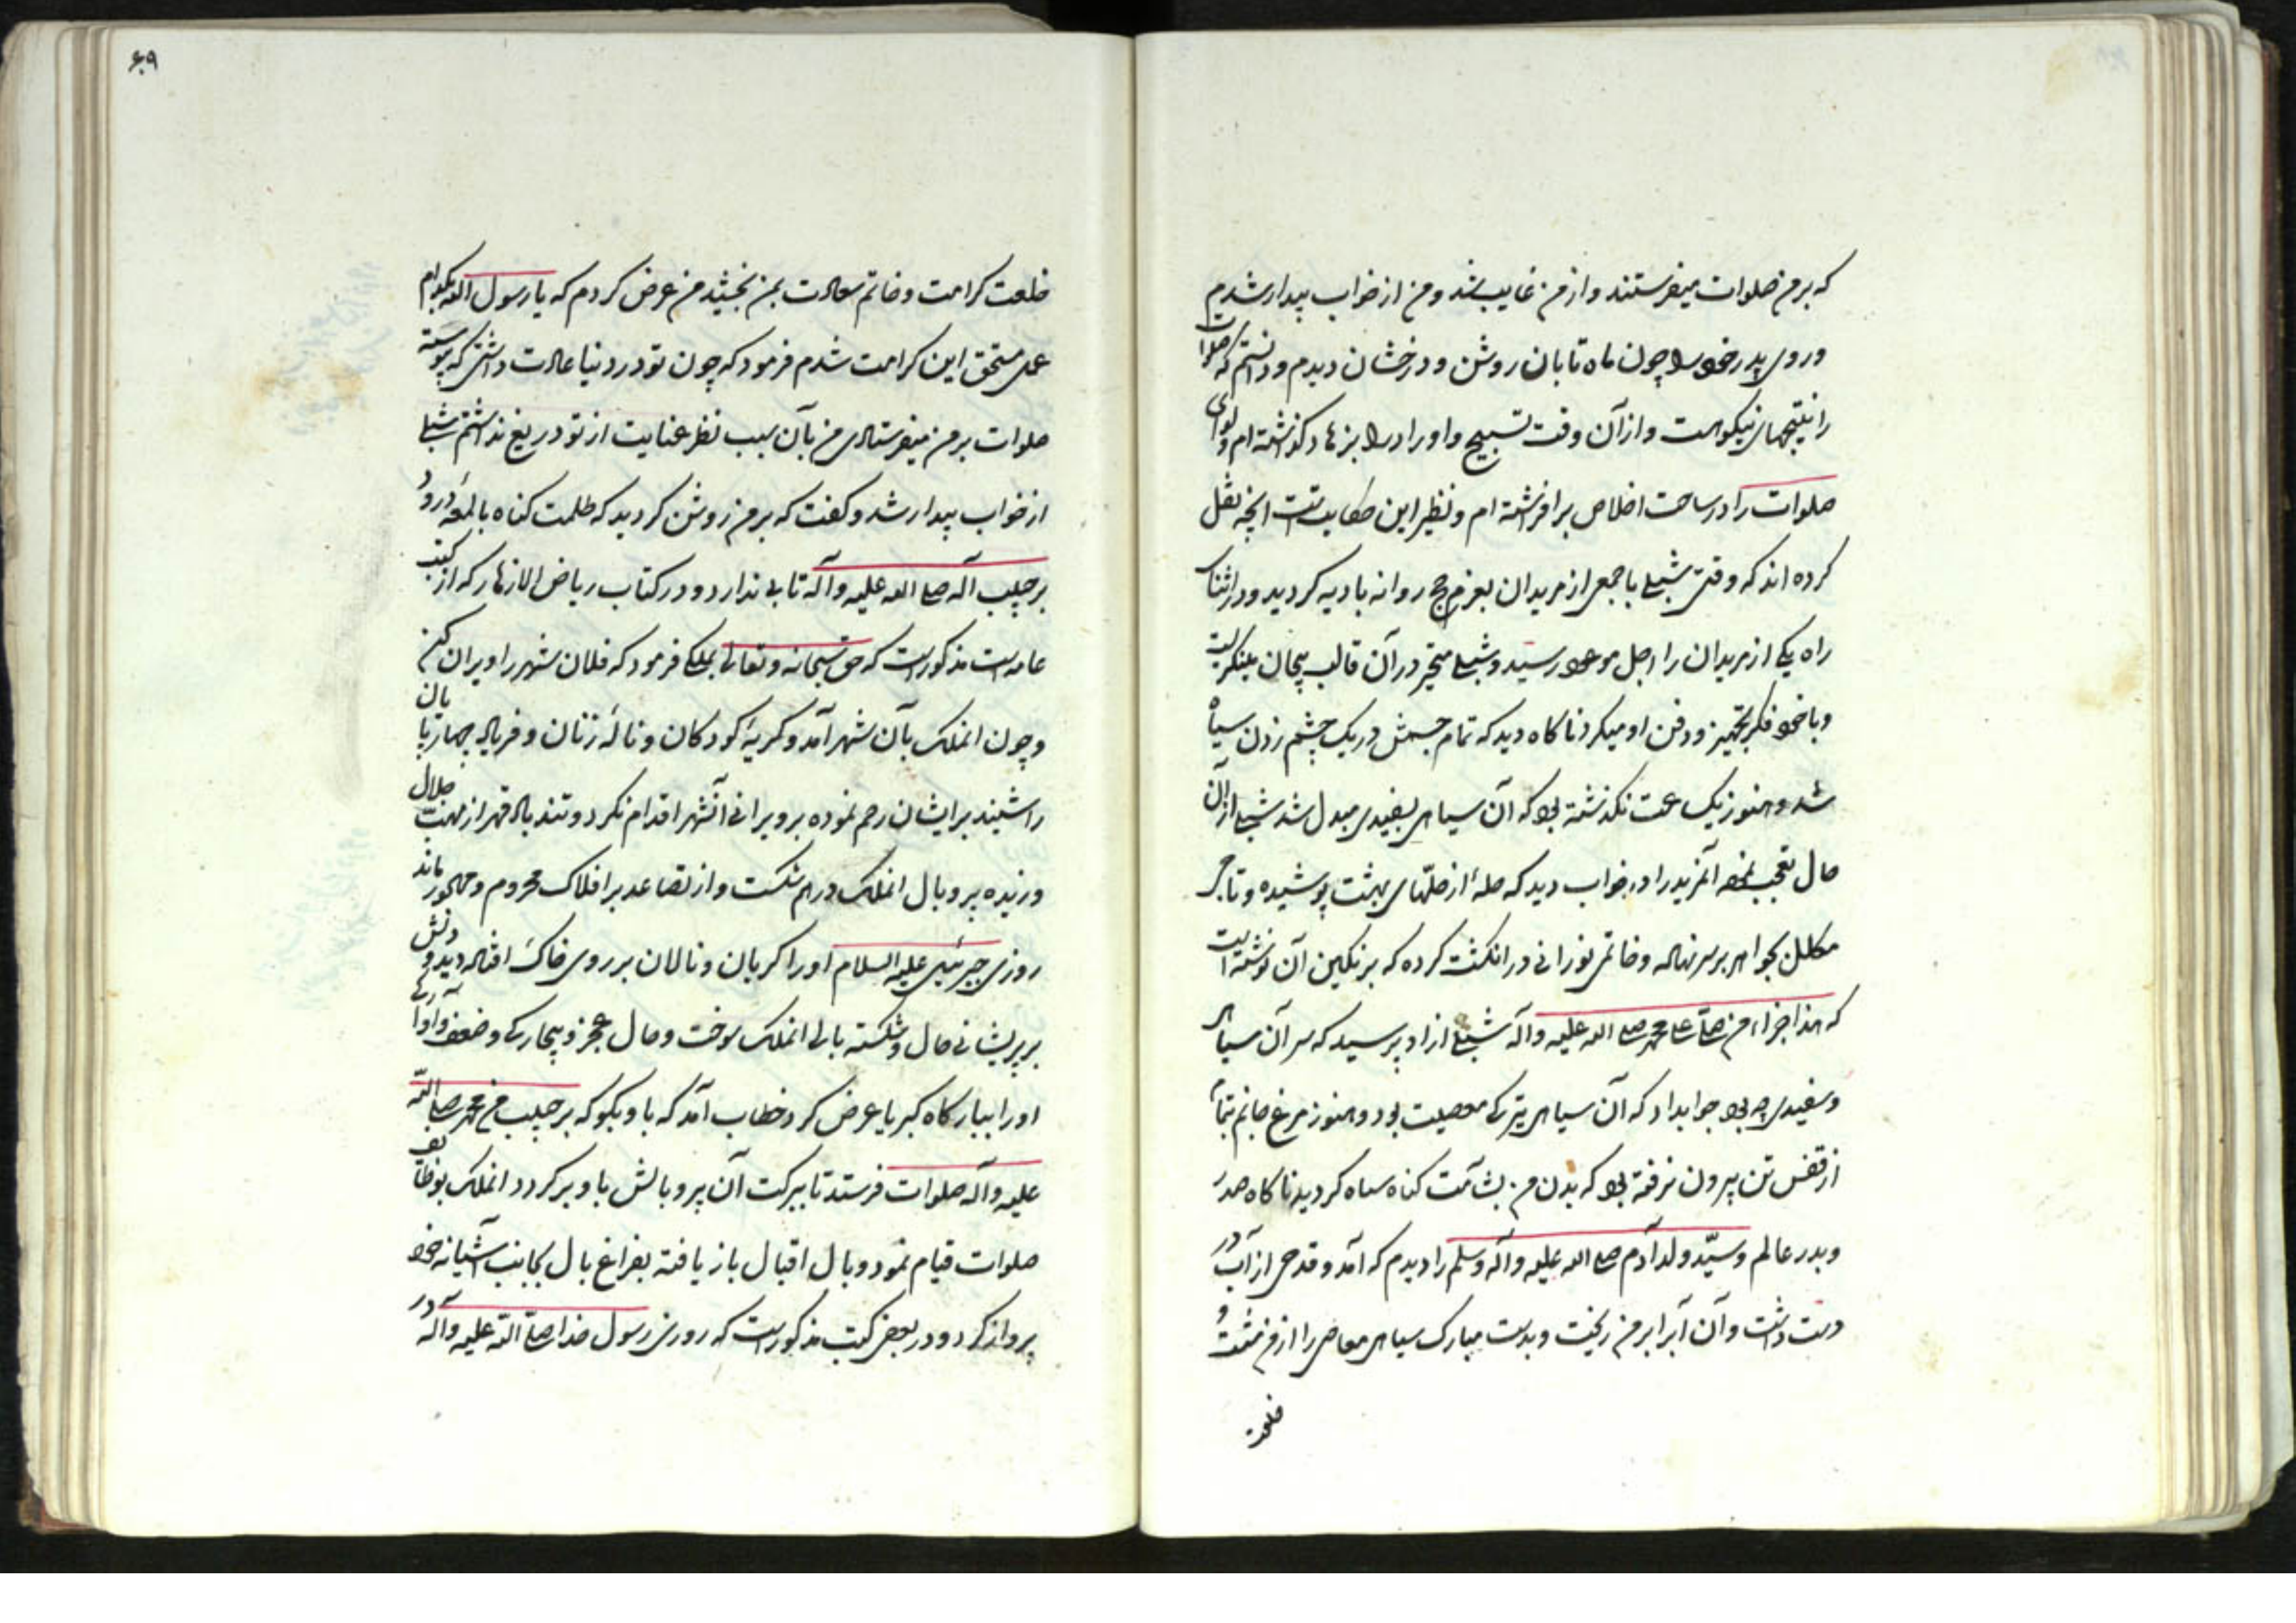 که بر من صلوات میفرستند و از من غایب شد و من از خواب بیدار شدم
و روی پدر خود را چون ماه تابان روشن و درخشان دیدم و دانستم که صلوات
را نتیجهای نیکوست و از آن وقت تسبیح و اوراد را بزهاد گذاشته ام و لوای
صلوات را در ساحت اخلاص برافراشته ام و نظیر این حکایت است انچه نقل
کرده اند که وقتی شبلی با جمعی از مریدان بعزم حج روانه بادیه گردید و در اثنای
راه یکی از مریدان را اجل موعود رسید و شبلی متحیر در آن قالب بیجان مینگریست
و با خود فکر تجهیز و دفن او میکرد ناگاه دید که تمام جسمش در یک چشم زدن سیاه
شد و هنوز یک ساعت نگذشته بود که آن سیاهی بسفیدی مبدل شد شبلی از آن
حال تعجب نمود آنمرید را در خواب دید که حلهٔ از حلّهای بهشت پوشیده و تاجی
مکلل بجواهر بر سر نهاده و خاتمی نورانی در انگشت کرده که بر نگین آن نوشته است
که هذا جزاء من صلّی علی محمد صلی الله علیه وآله شبلی از او پرسید که سر آن سیاهی
و سفیدی چه بود جوابداد که آن سیاهی تیرگی معصیت بود و هنوز مرغ جانم بتمام
از قفس تن بیرون نرفته بود که بدن من بشآمت گناه سیاه گردید ناگاه صدر
و بدر عالم و سیّد ولد آدم صلی الله علیه وآله وسلم را دیدم که آمد و قدحی از آب در
دست داشت و آن آبرا بر من ریخت و بدست مبارک سیاهی معاصی را از من شست و
خلعت
۶۰۹
خلعت کرامت و خاتم سعادت بمن بخشید من عرض کردم که یا رسول الله بکدام
عمل مستحق این کرامت شدم فرمود که چون تو در دنیا عادت داشتی که پیوسته
صلوات بر من میفرستادی من بآن سبب نظر عنایت از تو دریغ نداشتم شبلی
از خواب بیدار شد و گفت که بر من روشن گردید که ظلمت گناه با لمعهٔ درود
بر حبیب آله صلی الله علیه وآله تابی ندارد و در کتاب ریاض الازهار که از کتب
عامه است مذکور است که حق سبحانه وتعالی بملکی فرمود که فلان شهر را ویران کن
و چون انملک بآن شهر آمد و گریهٔ کودکان و نالهٔ زنان و فریاد چهارپایان
را شنید بر ایشان رحم نموده بر ویرانی آنشهر اقدام نکرد و تندباد قهر از مهب جلال
وزیده پر و بال انملک در هم شکست و از تصاعد بر افلاک محروم و مهجور ماند
روزی جبرئیل علیه السلام او را گریان و نالان بر روی خاک افتاده دید و دلش
بر پریشانی حال و شکسته بالی انملک سوخت و حال عجز و بیچارگی و ضعف و آوارگی
او را ببارگاه کبریا عرض کرد خطاب آمد که باو بگو که بر حبیب من محمد صلی الله
علیه وآله صلوات فرستد تا ببرکت آن پر و بالش باو برگردد انملک بوظایف
صلوات قیام نمود و بال اقبال باز یافته بفراغ بال بجانب آشیانه خود
پرواز کرد و در بعضی کتب مذکور است که روزی رسول خدا صلّی الله علیه وآله در